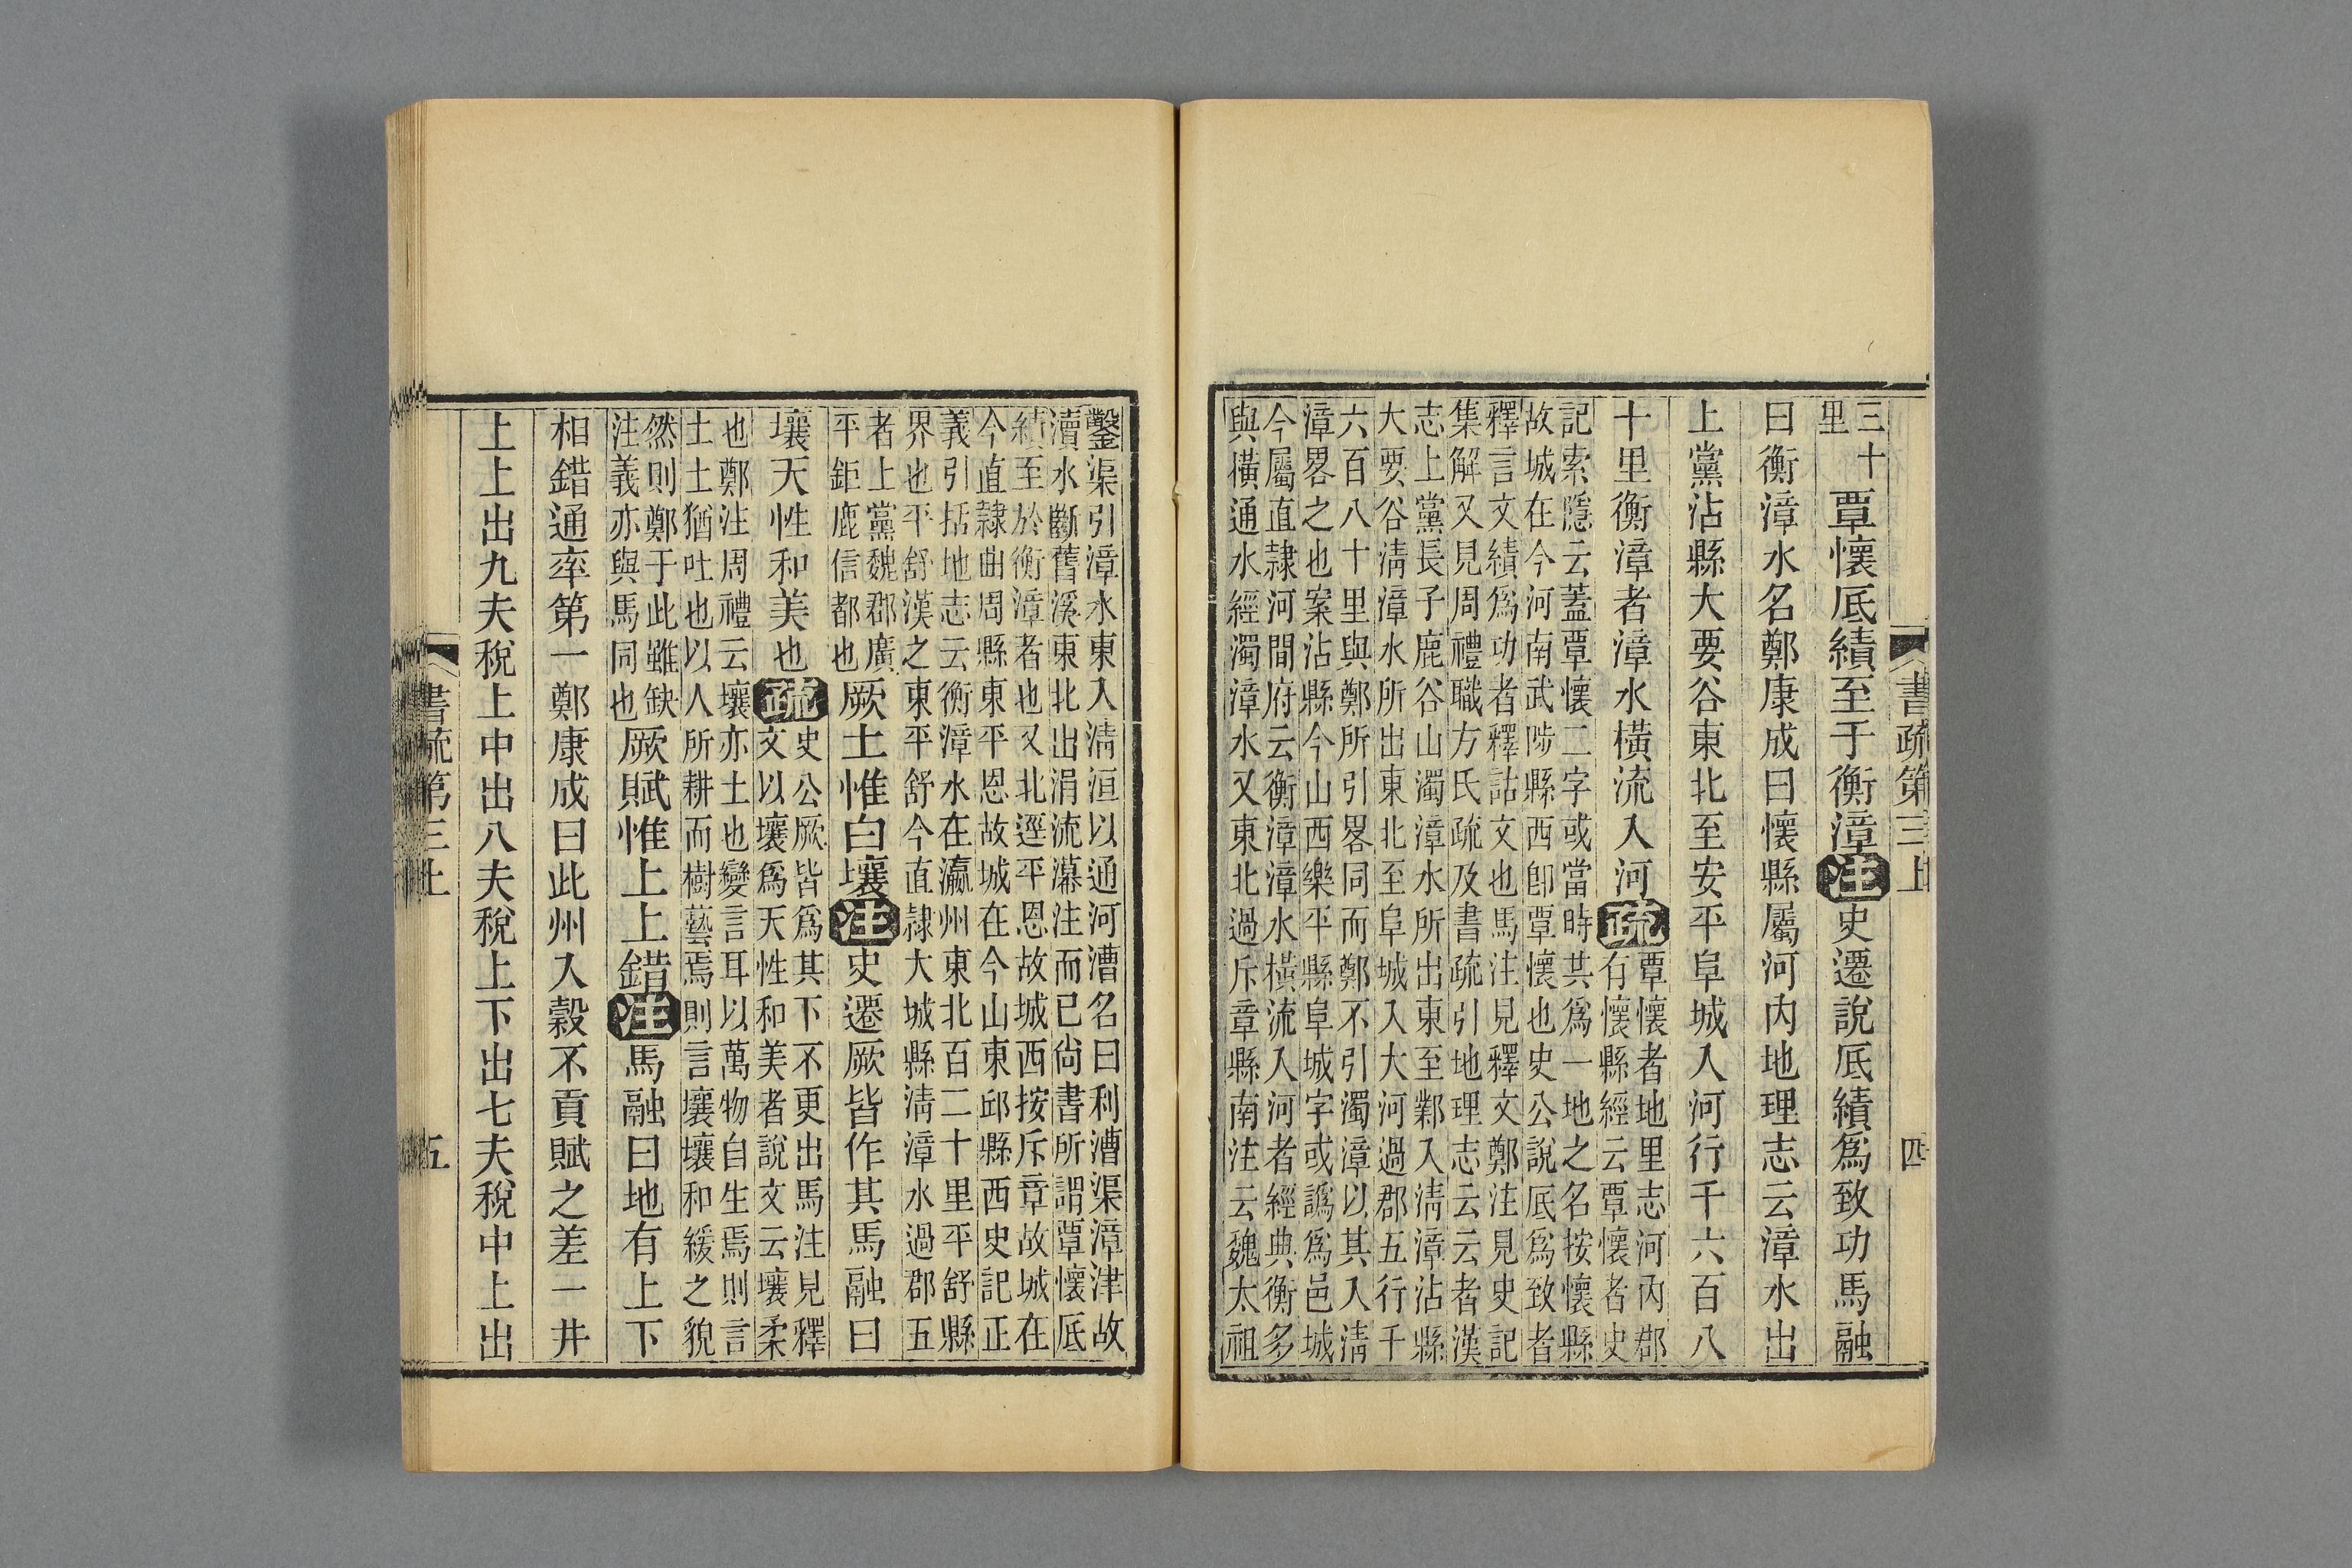 書疏第三上 四
三十
里
覃懷厎績至于衡漳注史遷說厎績爲致功馬融
曰衡漳水名鄭康成曰懷縣屬河內地理志云漳水出
上黨沾縣大要谷東北至安平阜城入河行千六百八
十里衡漳者漳水橫流入河疏
覃懷者地里志河內郡
有懷縣經云覃懷者史
記索隱云蓋覃懷二字或當時共爲一地之名按懷縣
故城在今河南武陟縣西卽覃懷也史公說厎爲致者
釋言文績爲功者釋詁文也馬注見釋文鄭注見史記
集解又見周禮職方氏疏及書疏引地理志云云者漢
志上黨長子鹿谷山濁漳水所出東至鄴入淸漳沾縣
大要谷淸漳水所出東北至阜城入大河過郡五行千
六百八十里與鄭所引畧同而鄭不引濁漳以其入淸
漳畧之也案沾縣今山西樂平縣阜城字或譌爲邑城
今屬直隷河間府云衡漳漳水橫流入河者經典衡多
與橫通水經濁漳水又東北過斥章縣南注云魏太祖
鑿渠引漳水東入淸洹以通河漕名曰利漕渠漳津故
瀆水斷舊溪東北出涓流濗注而已尙書所謂覃懷厎
績至於衡漳者也又北逕平恩故城西按斥章故城在
今直隷曲周縣東平恩故城在今山東邱縣西史記正
義引括地志云衡漳水在瀛州東北百二十里平舒縣
界也平舒漢之東平舒今直隷大城縣淸漳水過郡五
者上黨魏郡廣
平鉅鹿信都也
厥土惟白壤注史遷厥皆作其馬融曰
壤天性和美也疏
史公厥皆爲其下不更出馬注見釋
文以壤爲天性和美者說文云壤柔
也鄭注周禮云壤亦土也變言耳以萬物自生焉則言
土土猶吐也以人所耕而樹藝焉則言壤壤和緩之貌
然則鄭于此雖缺
注義亦與馬同也
厥賦惟上上錯注馬融曰地有上下
相錯通率第一鄭康成曰此州入穀不貢賦之差一井
上上出九夫稅上中出八夫稅上下出七夫稅中上出
書疏第三上 五